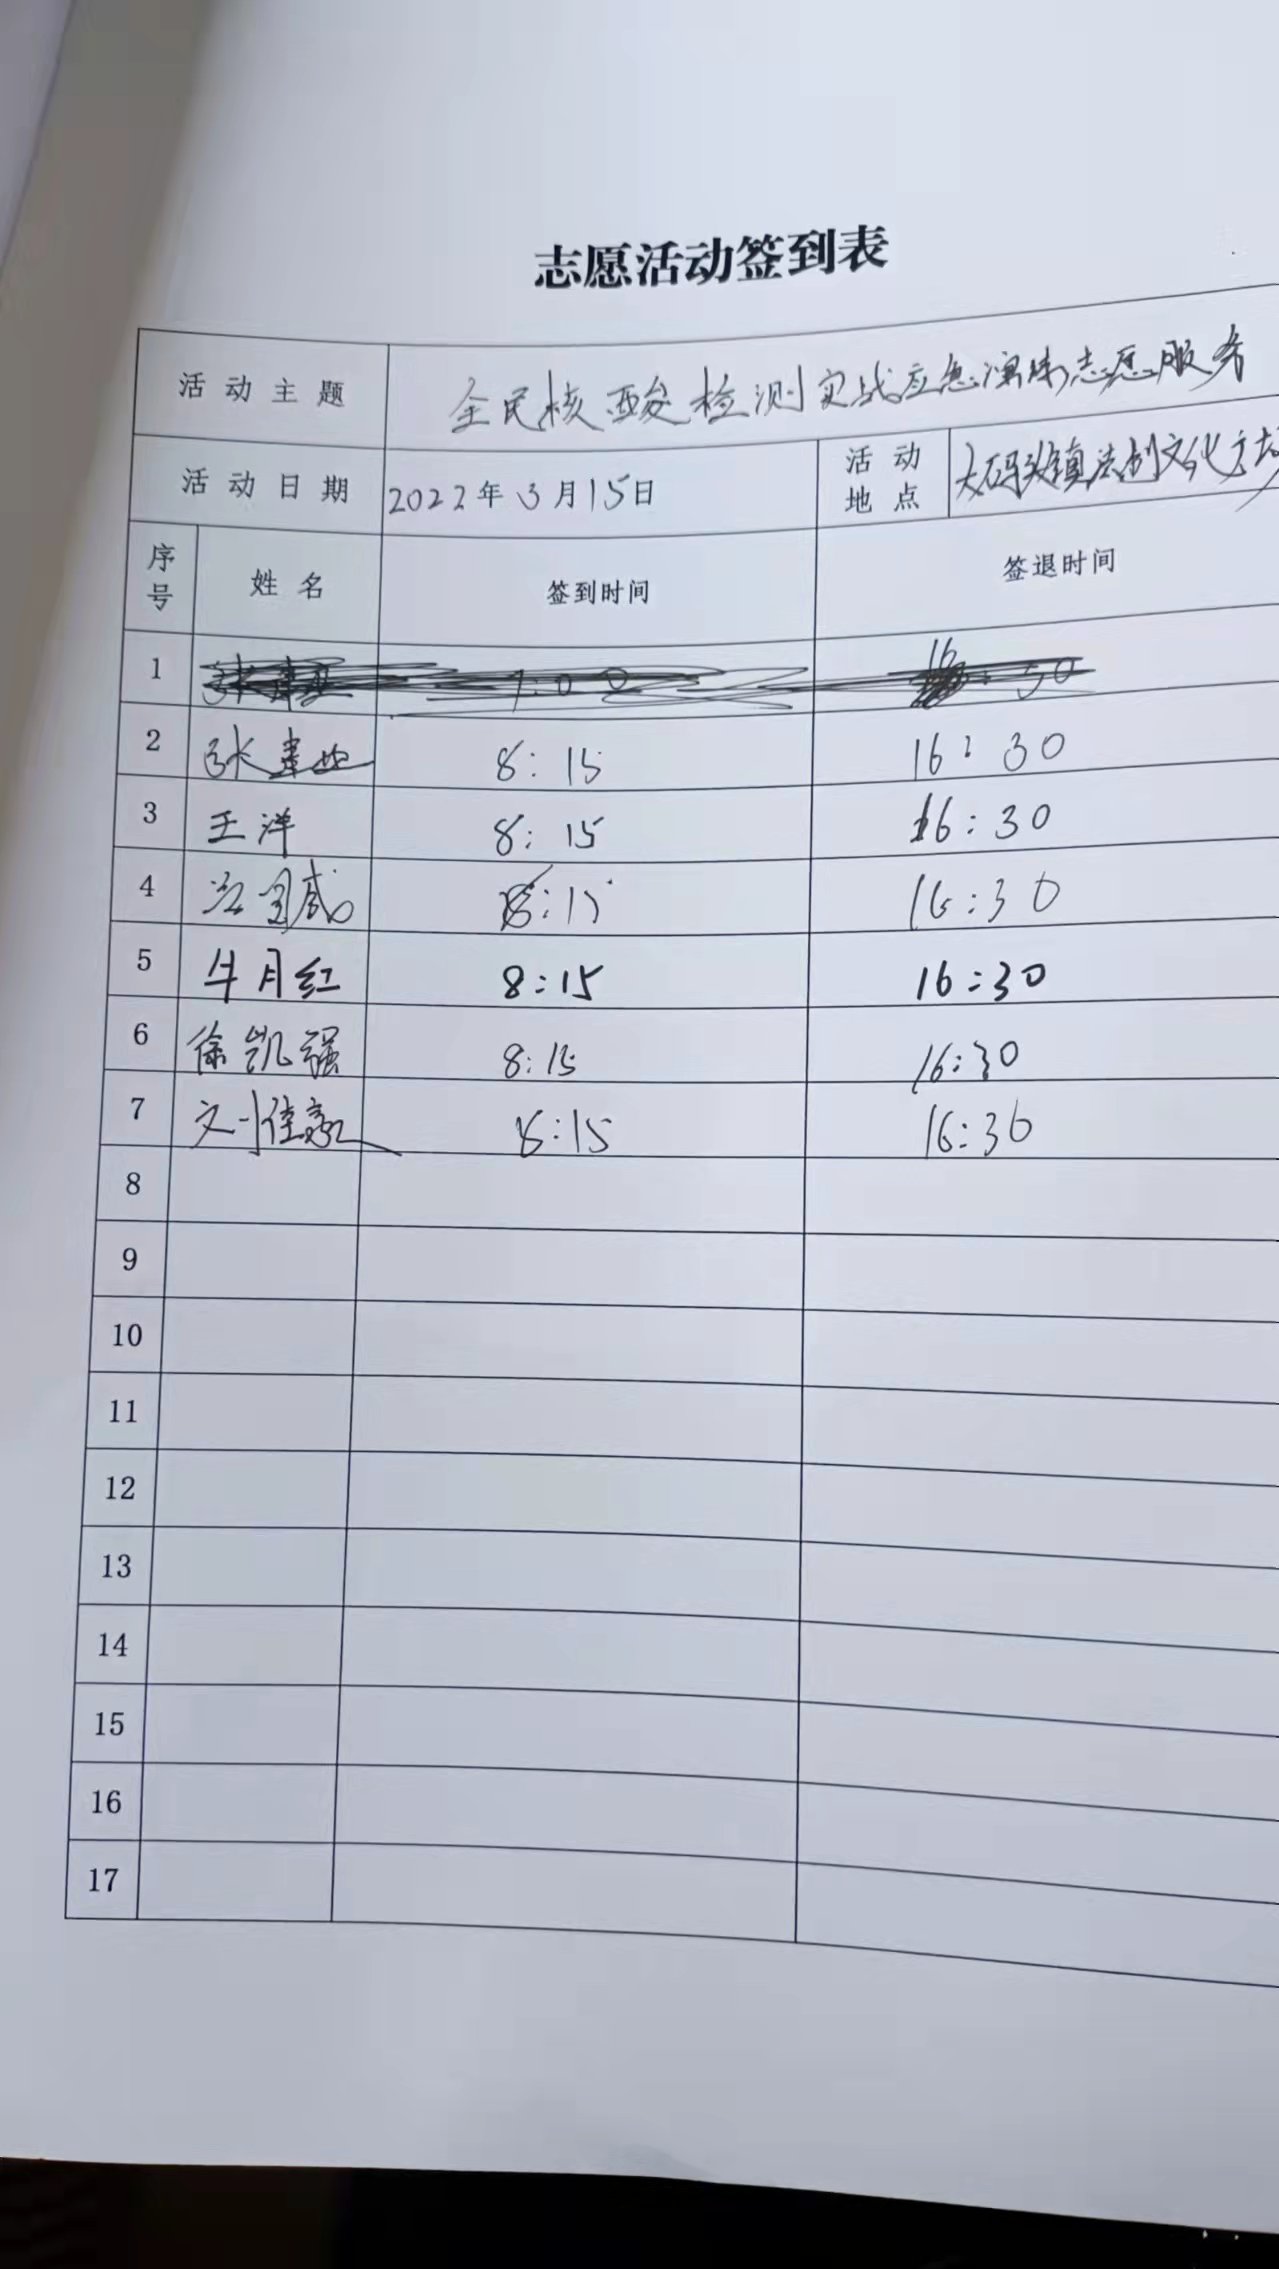 志愿活动签到表
活动主题 全民核酸检测实战应急演练志愿服务
活动日期 2022年3月15日 活动地点 大码头镇法制文化广场
序号 姓名 签到时间 签退时间
1
2 张建 8:15 16:30
3 王洋 8:15 16:30
4 8:15 16:30
5 牛月红 8:15 16:30
6 徐凯强 8:15 16:30
7 刘佳 8:15 16:30
8
9
10
11
12
13
14
15
16
17